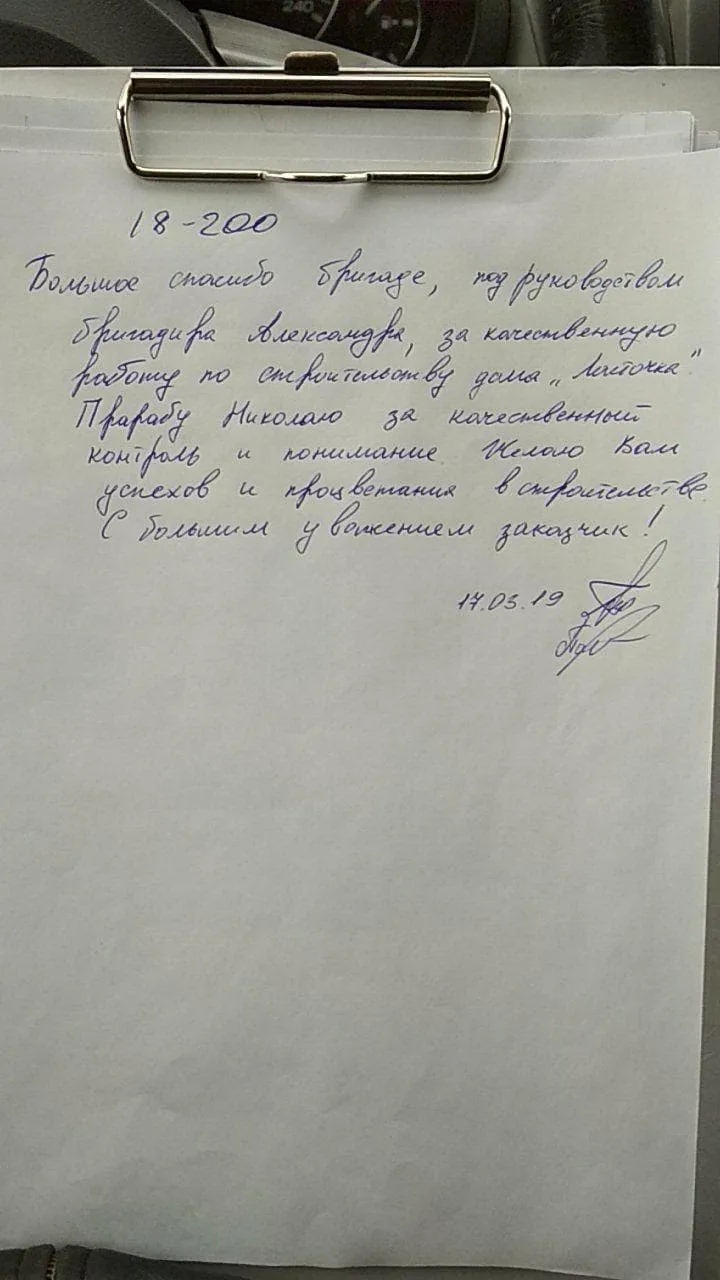 240
18-200
Большое спасибо бригаде, под руководством
бригадира Александра, за качественную
работу по строительству дома „Ласточка".
Прорабу Николаю за качественный
контроль и понимание. Желаю Вам
успехов и процветания в строительстве.
С большим уважением заказчик!
17.03.19